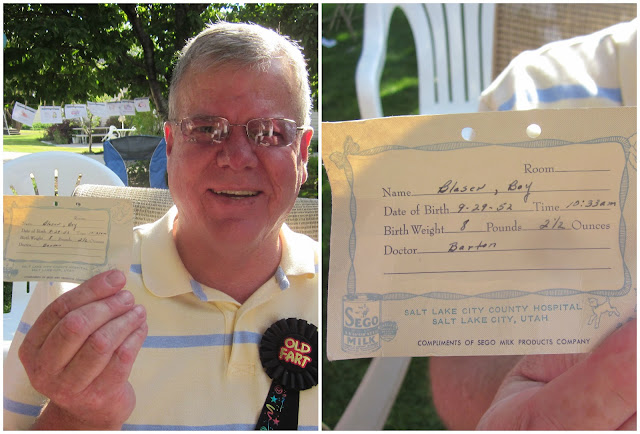 OLD
FART
Room
Name Blaser, Boy
Date of Birth 9-29-52 Time 10:33am
Birth Weight 8 Pounds 2½ Ounces
Doctor Barton
SEGO
MILK
SALT LAKE CITY COUNTY HOSPITAL
SALT LAKE CITY, UTAH
COMPLIMENTS OF SEGO MILK PRODUCTS COMPANY